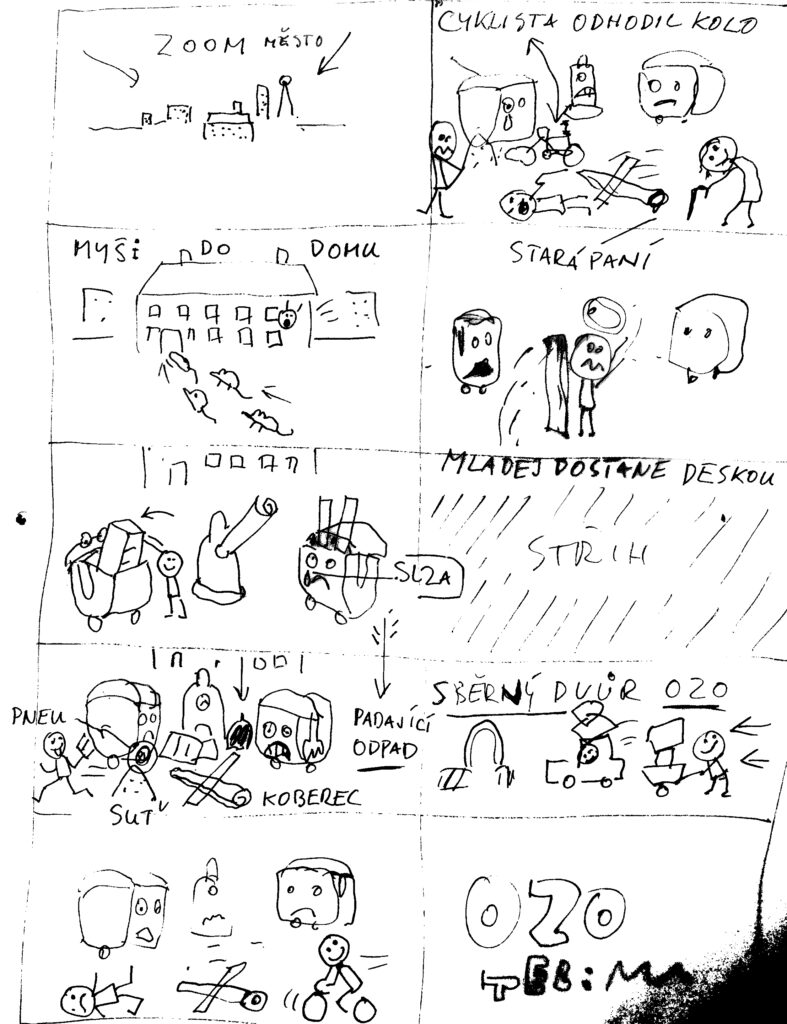 ZOOM MĚSTO
CYKLISTA ODHODIL KOLO
MYŠI DO DOMU
STARÁ PANÍ
MLADEJ DOSTANE DESKOU
SLZA
STŘIH
PNEU
PADAJÍCÍ
ODPAD
SUŤ
KOBEREC
SBĚRNÝ DVŮR OZO
OZO